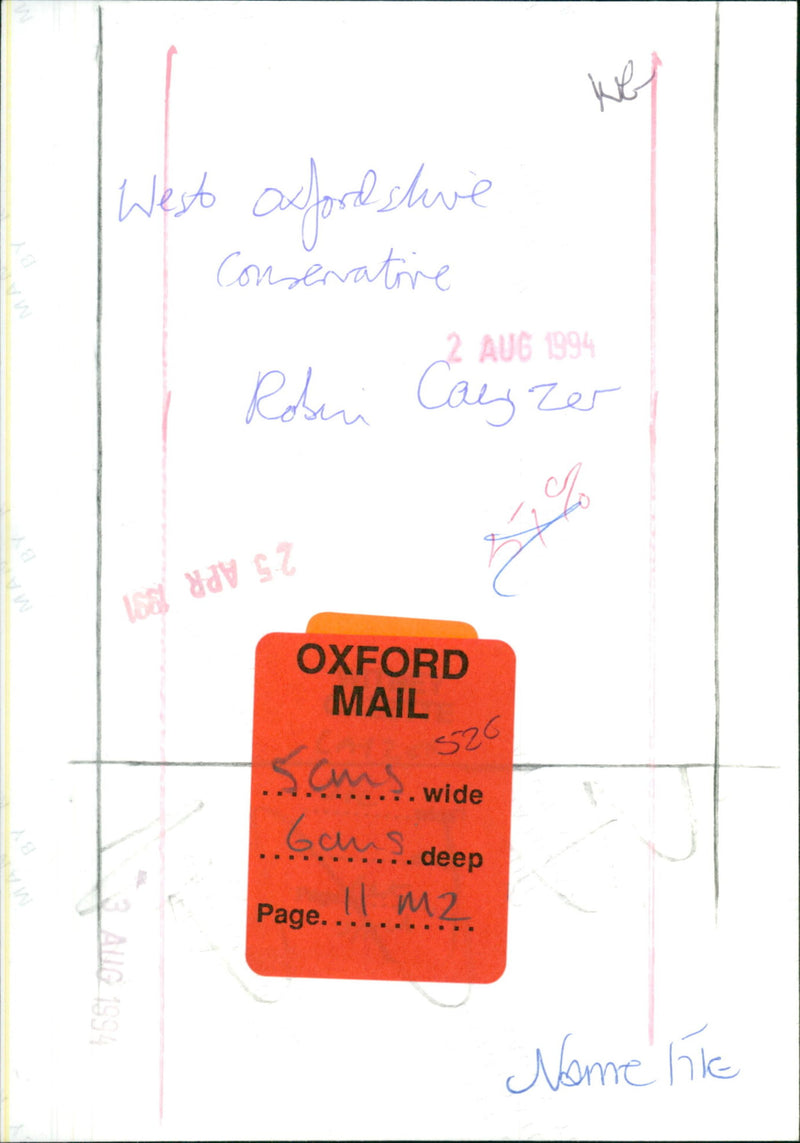 West Oxfordshire
Conservative
2 AUG 1994
Robin Cayzer
51%
25 APR 1991
OXFORD
MAIL
526
5cms wide
6cms deep
Page. 11 M2
3 AUG 1994
Name File